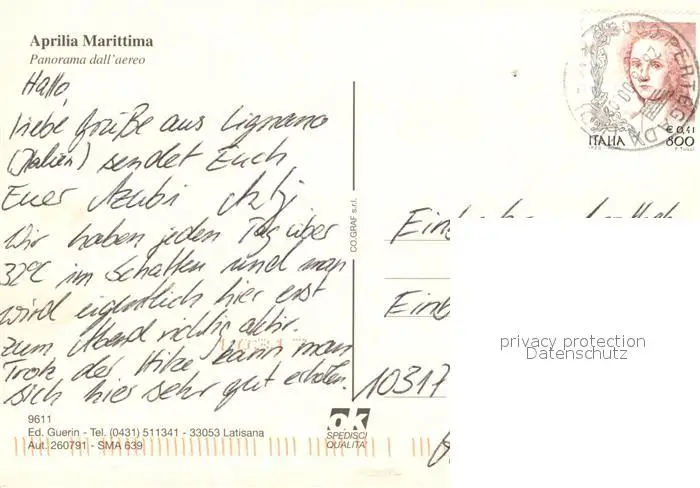 Aprilia Marittima
Panorama dall'aereo
Hallo,
liebe Grüße aus Lignano
(Italien) sendet Euch
Euer Azubi
Wir haben jeden Tag über
32°C im Schatten und man
wird eigentlich hier erst
zum Abend richtig aktiv.
Trotz der Hitze kann man
sich hier sehr gut erholen.
9611
Ed. Guerin - Tel. (0431) 511341 - 33053 Latisana
Aut. 260791 - SMA 639
CO.GRAF s.r.l.
ok
SPEDISCI
QUALITA'
PERTEGADA
€ 0,41
ITALIA 800
10317
privacy protection
Datenschutz